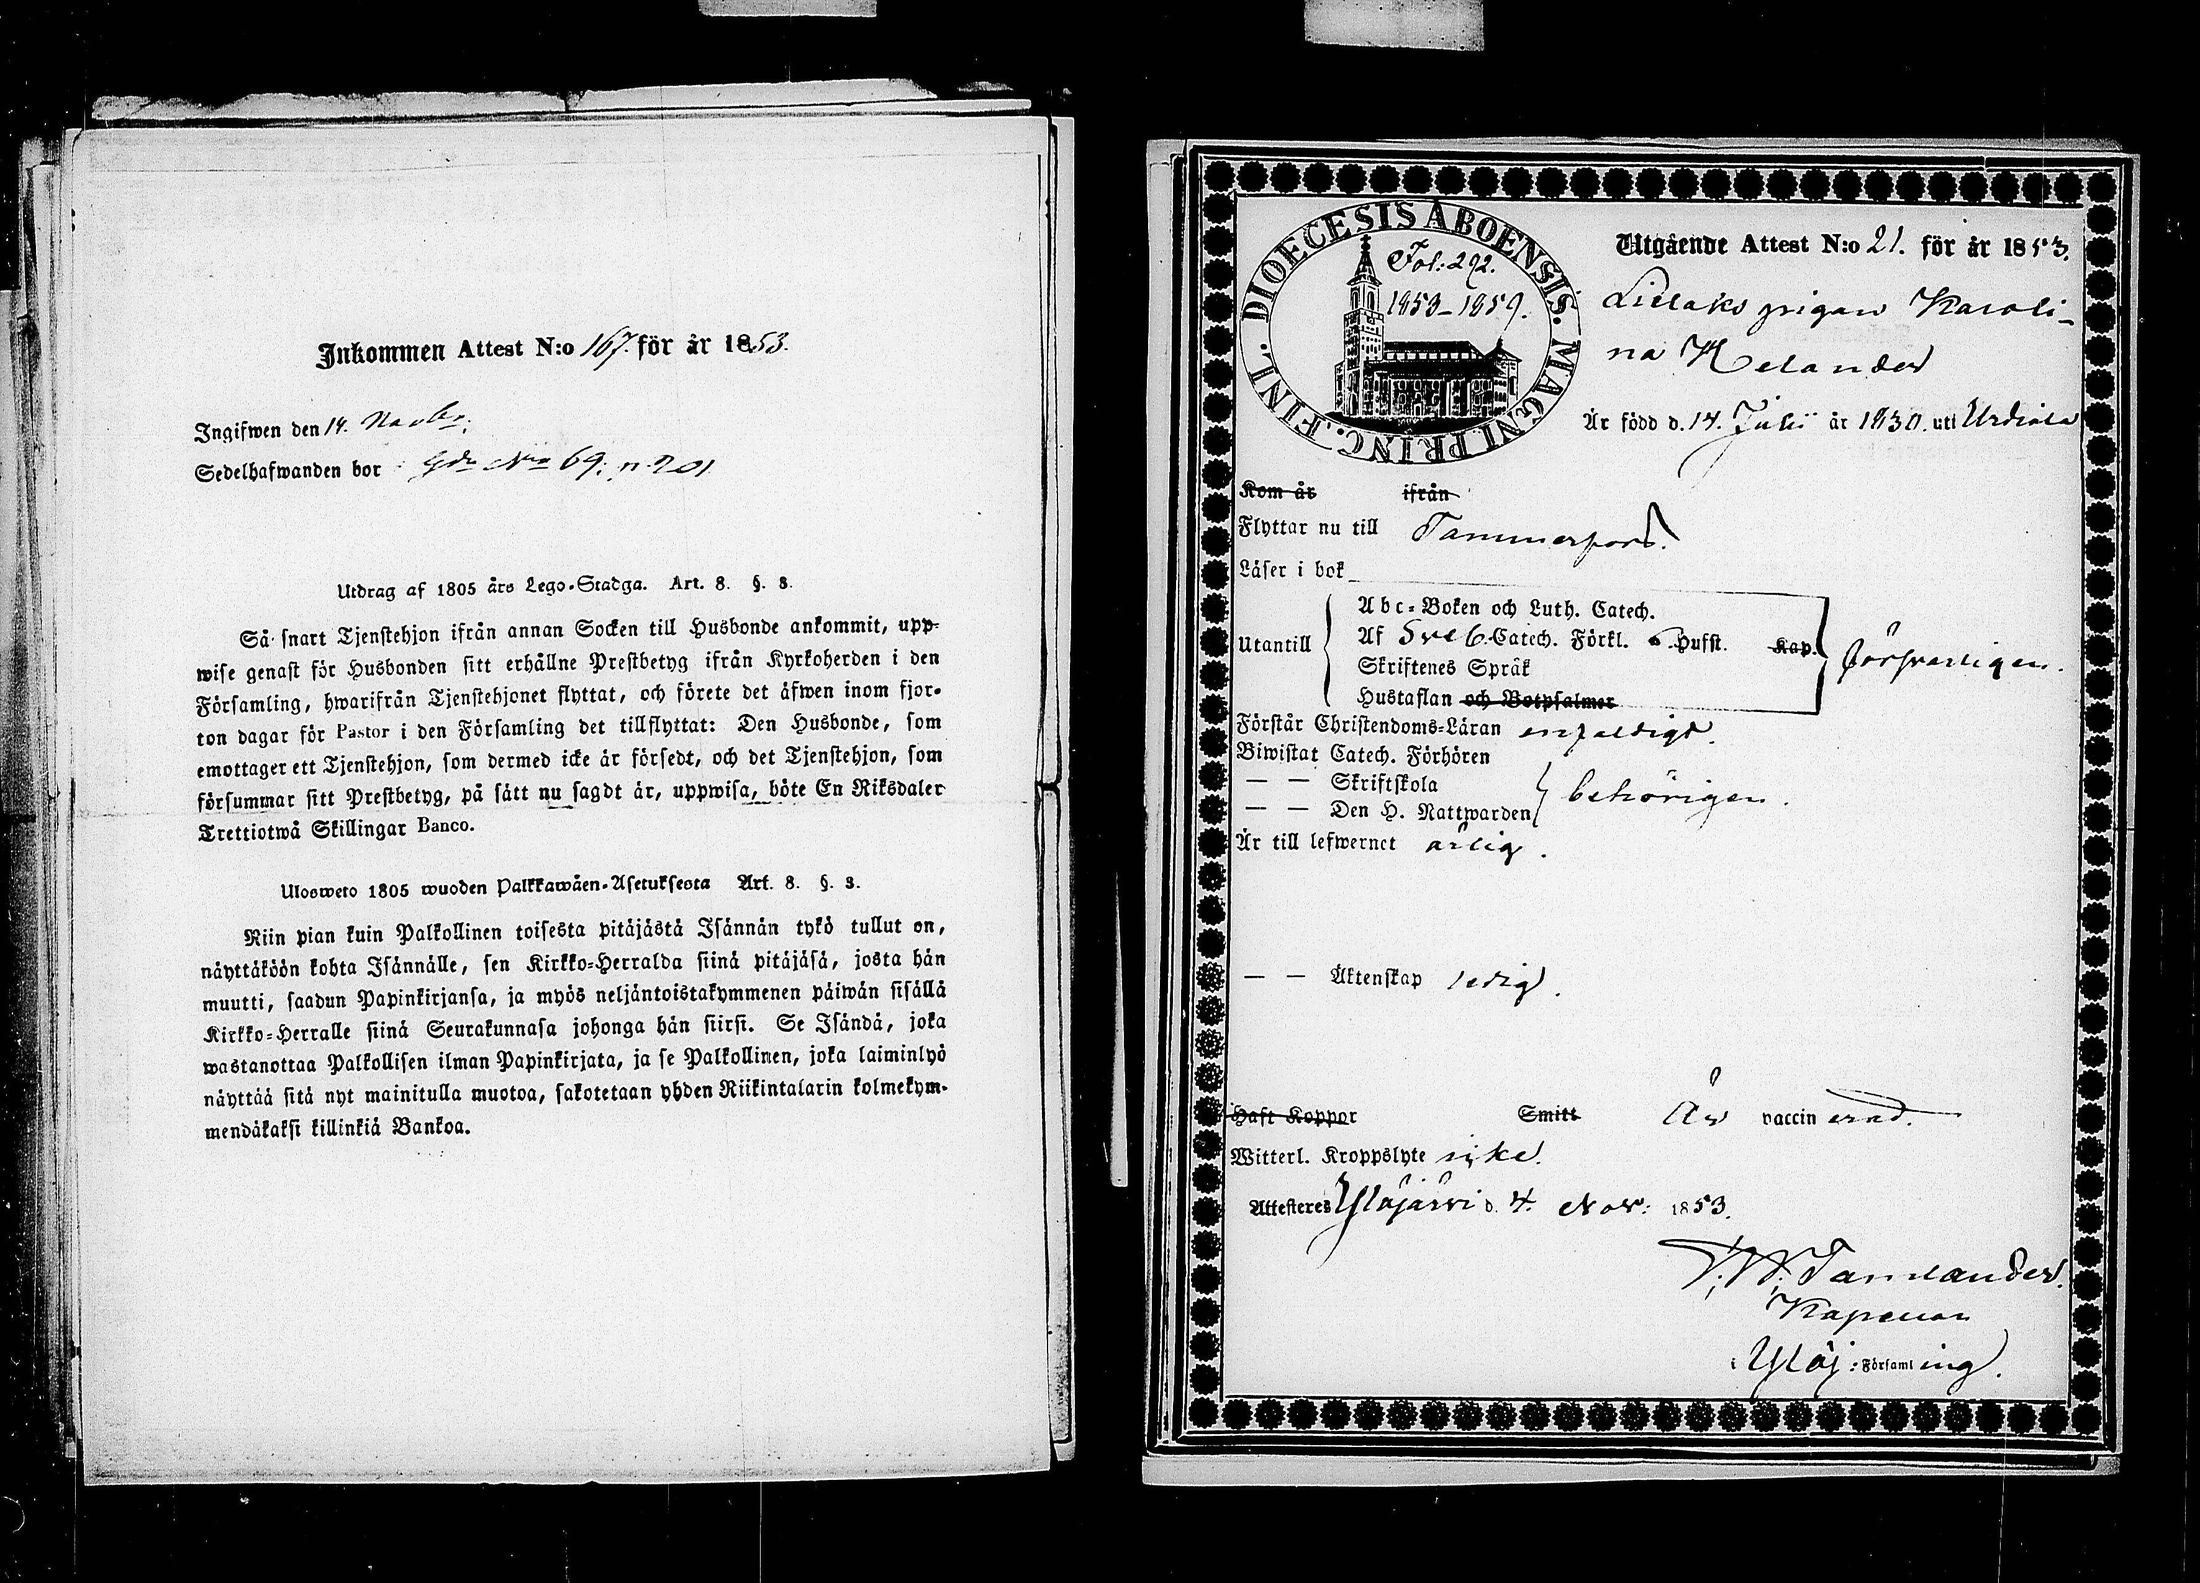 Inkommen Attest N:o 167. för år 1853.
Ingifwen den 14. Novbr.
Sedelhafwanden bor Gdn No 69: p. 201
Utdrag af 1805 års Lego-Stadga. Art. 8. §. 3.
Så snart Tjenstehjon ifrån annan Socken till Husbonde ankommit, upp-
wise genast för Husbonden sitt erhållne Prestbetyg ifrån Kyrkoherden i den
Församling, hwarifrån Tjenstehjonet flyttat, och förete det äfwen inom fjor-
ton dagar för Pastor i den Församling det tillflyttat: Den Husbonde, som
emottager ett Tjenstehjon, som dermed icke är försedt, och det Tjenstehjon, som
försummar sitt Prestbetyg, på sätt nu sagdt är, uppwisa, böte En Riksdaler
Trettiotwå Skillingar Banco.
Ulosweto 1805 wuoden Palkkawäen-Asetuksesta Art. 8. §. 3.
Niin pian kuin Palkollinen toisesta pitäjästä Isännän tykö tullut on,
näyttäköön kohta Isännälle, sen Kirkko-Herralda siinä pitäjäsä, josta hän
muutti, saadun Papinkirjansa, ja myös neljäntoistakymmenen päiwän sisällä
Kirkko-Herralle siinä Seurakunnasa johonga hän siirsi. Se Isändä, joka
wastanottaa Palkollisen ilman Papinkirjata, ja se Palkollinen, joka laiminlyö
näyttää sitä nyt mainitulla muotoa, sakotetaan yhden Riikintalarin kolmekym-
mendäkaksi killinkiä Bankoa.
DIOECESIS ÅBOENSIS. MAGNI. PRINC. FINL.
Fol: 292.
1853–1859.
Utgående Attest N:o 21. för år 1853.
Lielaks pigan Karoli-
na Helander
Är född d. 14. Julii år 1830. uti Urdiala
Kom år ifrån
Flyttar nu till Tammerfors.
Läser i bok
Utantill
Abc-Boken och Luth. Catech.
Af Sveb. Catech. Förkl. 6. Hufst. Kap.
Skriftenes Språk
Hustaflan och Botpsalmer
försvarligen.
Förstår Christendoms-Läran enfaldigt.
Biwistat Catech. Förhören
— — Skriftskola
— — Den H. Nattwarden
behörigen.
Är till lefwernet ärlig.
— — Äktenskap ledig.
Haft Koppor Smitt Är vaccinerad.
Witterl. Kroppslyte icke.
Attesteres Ylöjärvi d. 4. Nov: 1853.
Kapellan
i Ylöj: Församling.